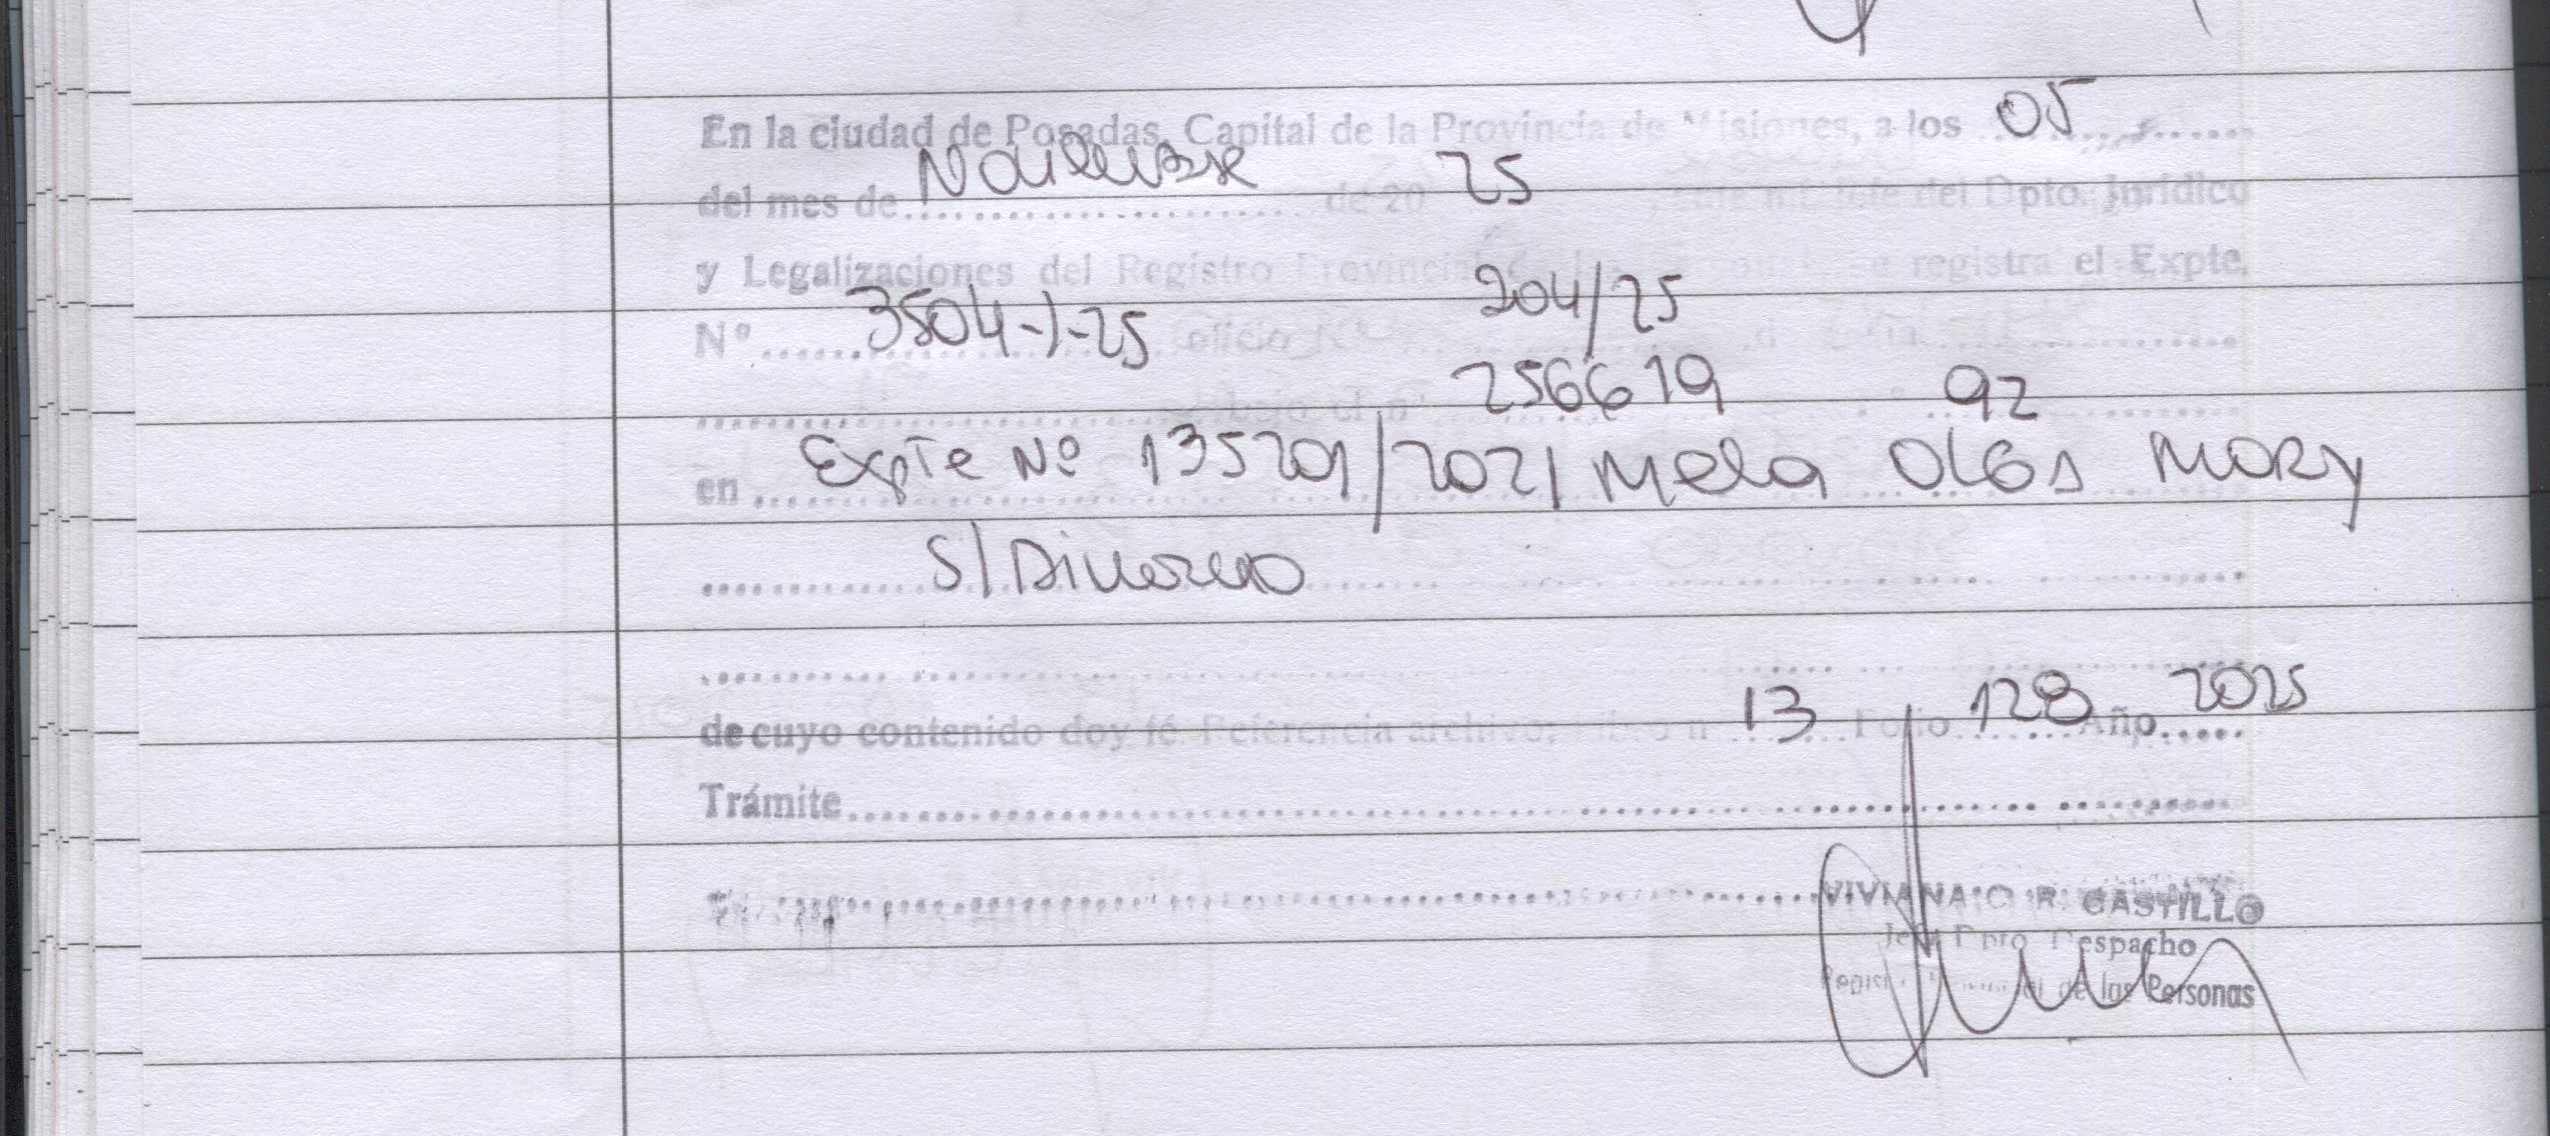 En la ciudad de Posadas, Capital de la Provincia de Misiones, a los 05
del mes de Noviembre de 20 25 del Dpto. Jurídico
y Legalizaciones del Registro Provincial registra el Expte,
Nº 3504-J-25 oficio Nº 204/25
bajo el nº 256619 92
en Expte Nº 135201/2021 Mela OLGA MARY
S/Divorcio
de cuyo contenido doy fé. Referencia archivo: Libro nº 13 Folio 128 Año 2025
Trámite
VIVIANA C. R. CASTILLO
Jefe Dpto Despacho
Registro Provincial de las Personas